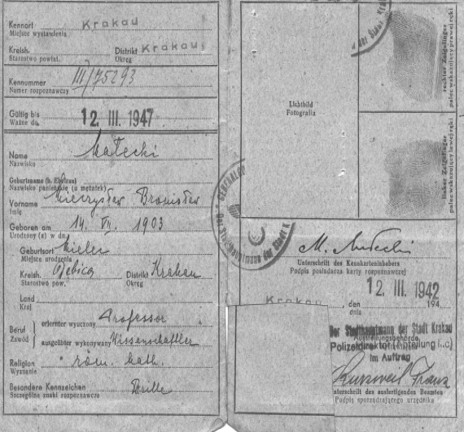 Kennort Krakau
Miejsce wystawienia
Kreish. Distrikt Krakau
Starostwo powiat. Okręg
Kennummer III/75293
Numer rozpoznawczy
Gültig bis 12. III. 1947
Ważne do
Name Małecki
Nazwisko
Geburtsname (b. Ehefrau)
Nazwisko panieńskie (u mężatek)
Vorname Mieczysław Bronisław
Imię
Geboren am 14. VII. 1903
Urodzony(a) w dn.
Geburtsort Mielec
Miejsce urodzenia
Kreish. Dębica Distrikt Krakau
Starostwo pow. Okręg
Land
Kraj
Beruf erlernter wyuczony Professor
Zawód ausgeübter wykonywany Wissenschaftler
Religion röm. kath.
Wyznanie
Besondere Kennzeichen Brille
Szczególne znaki rozpoznawcze
Lichtbild
Fotografia
rechter Zeigefinger
palec wskazujący prawej ręki
linker Zeigefinger
palec wskazujący lewej ręki
M. Małecki
Unterschrift des Kennkarteninhabers
Podpis posiadacza karty rozpoznawczej
12. III. 1942
Krakau, den 194
dnia
Der Stadthauptmann der Stadt Krakau
Ausstellungsbehörde
Polizeidirektion
Im Auftrag
Kurzweil Franz
Unterschrift des ausfertigenden Beamten
Podpis sporządzającego urzędnika